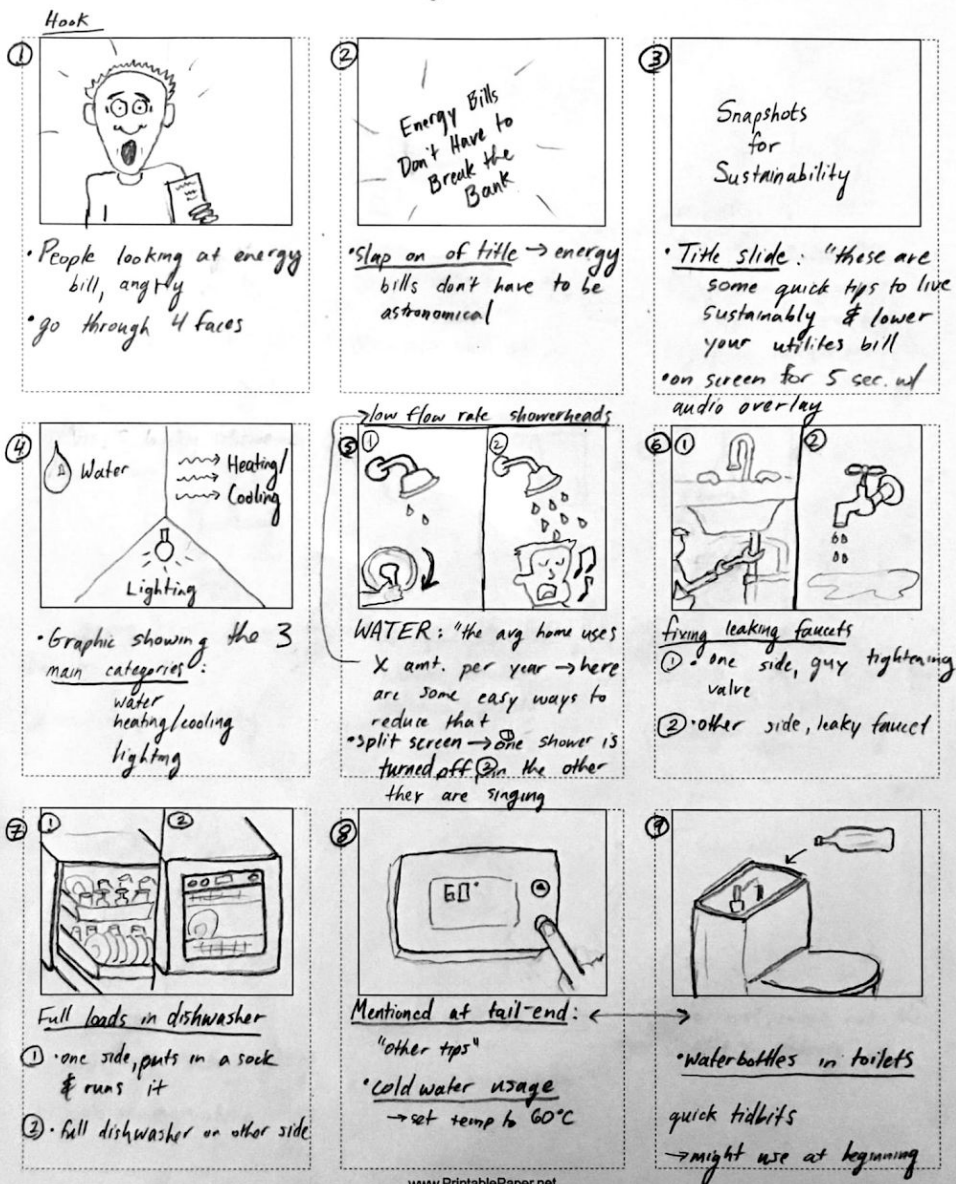 Hook
①
• People looking at energy
bill, angrty
• go through 4 faces
②
Energy Bills
Don't Have to
Break the
Bank
• slap on of title → energy
bills don't have to be
astronomical
③
Snapshots
for
Sustainability
• Title slide: "these are
some quick tips to live
sustainably & lower
your utilites bill
• on screen for 5 sec. w/
audio overlay
④
Water
Heating/
Cooling
Lighting
• Graphic showing the 3
main categories:
water
heating/cooling
lighting
→ low flow rate showerheads
⑤
① ②
WATER: "the avg home uses
X amt. per year → here
are some easy ways to
reduce that
• split screen → ① one shower is
turned off, ② in the other
they are singing
⑥
① ②
fixing leaking faucets
① • one side, guy tightening
valve
② • other side, leaky faucet
⑦
① ②
Full loads in dishwasher
① • one side, puts in a sock
& runs it
② • full dishwasher on other side
⑧
60°
Mentioned at tail-end: ↔
"other tips"
• cold water usage
→ set temp to 60°C
⑨
• waterbottles in toilets
quick tidbits
→ might use at beginning
www.PrintablePaper.net